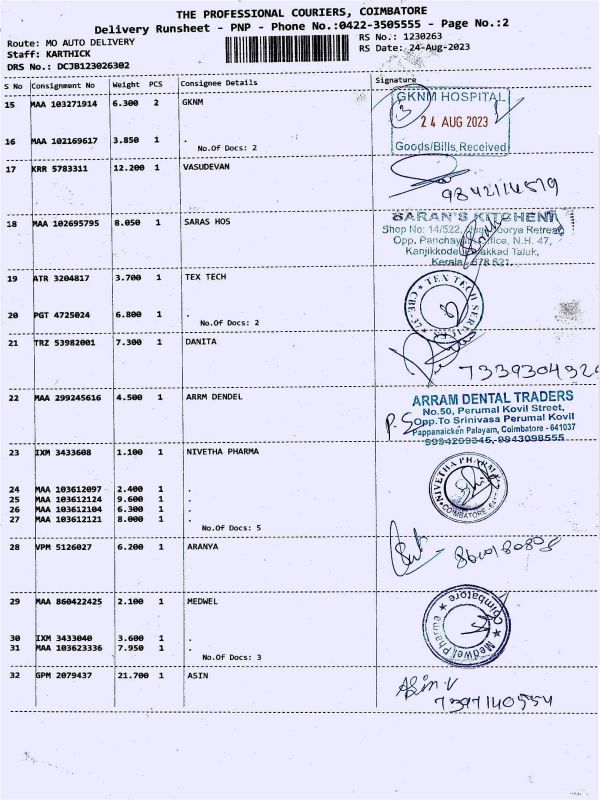 THE PROFESSIONAL COURIERS, COIMBATORE
Delivery Runsheet - PNP - Phone No.:0422-3505555 - Page No.:2
Route: MO AUTO DELIVERY RS No.: 1230263
Staff: KARTHICK RS Date: 24-Aug-2023
DRS No.: DCJB123026302
S No Consignment No Weight PCS Consignee Details Signature
15 MAA 103271914 6.300 2 GKNM
GKNM HOSPITAL
3
24 AUG 2023
Goods/Bills Received
16 MAA 102169617 3.850 1 .
No.Of Docs: 2
17 KRR 5783311 12.200 1 VASUDEVAN
9842114519
18 MAA 102695795 8.050 1 SARAS HOS
SARAN'S KITCHEN
Shop No: 14/522, Retreat
Opp. Panchayat Office, N.H. 47,
Kanjikkode, Palakkad Taluk,
Kerala - 678 621.
19 ATR 3204817 3.700 1 TEX TECH
TEX TECH SERVICE
20 PGT 4725024 6.800 1 .
No.Of Docs: 2
21 TRZ 53982001 7.300 1 DANITA
22 MAA 299245616 4.500 1 ARRM DENDEL
ARRAM DENTAL TRADERS
No.50, Perumal Kovil Street,
Opp.To Srinivasa Perumal Kovil
Pappanaicken Palayam, Coimbatore - 641037
9994299345, 9943098555
23 IXM 3433608 1.100 1 NIVETHA PHARMA
NIVETHA PHARMA
COIMBATORE
24 MAA 103612097 2.400 1 .
25 MAA 103612124 9.600 1 .
26 MAA 103612104 6.300 1 .
27 MAA 103612121 8.000 1 .
No.Of Docs: 5
28 VPM 5126027 6.200 1 ARANYA
29 MAA 860422425 2.100 1 MEDWEL
Medwel Pharma
Coimbatore
30 IXM 3433040 3.600 1 .
31 MAA 103623336 7.950 1 .
No.Of Docs: 3
32 GPM 2079437 21.700 1 ASIN
Asin.V
7397140554